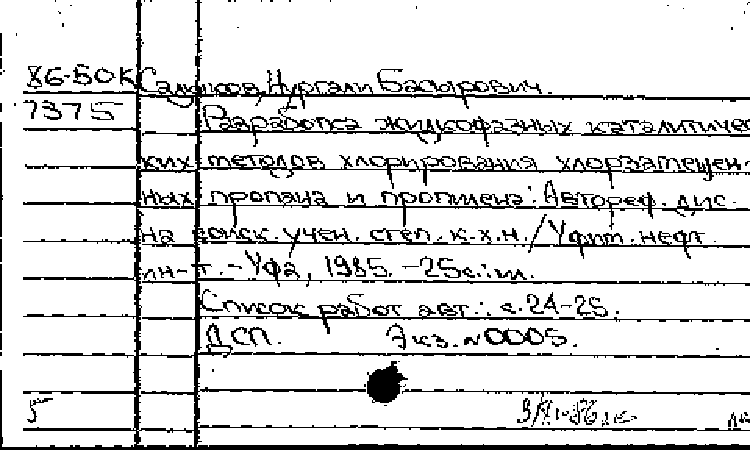 86-БОК
7375
Нургали Басырович.
Разработка жидкофазных каталитичес
ких методов хлорирования хлорзамещен-
ных пропана и пропилена: Автореф. дис.
на соиск. учен. степ. к.х.н. / Уфим. нефт.
ин-т. - Уфа, 1985. - 25с.: ил.
Список работ авт.: с. 24-25.
ДСП. Экз. №0005.
5